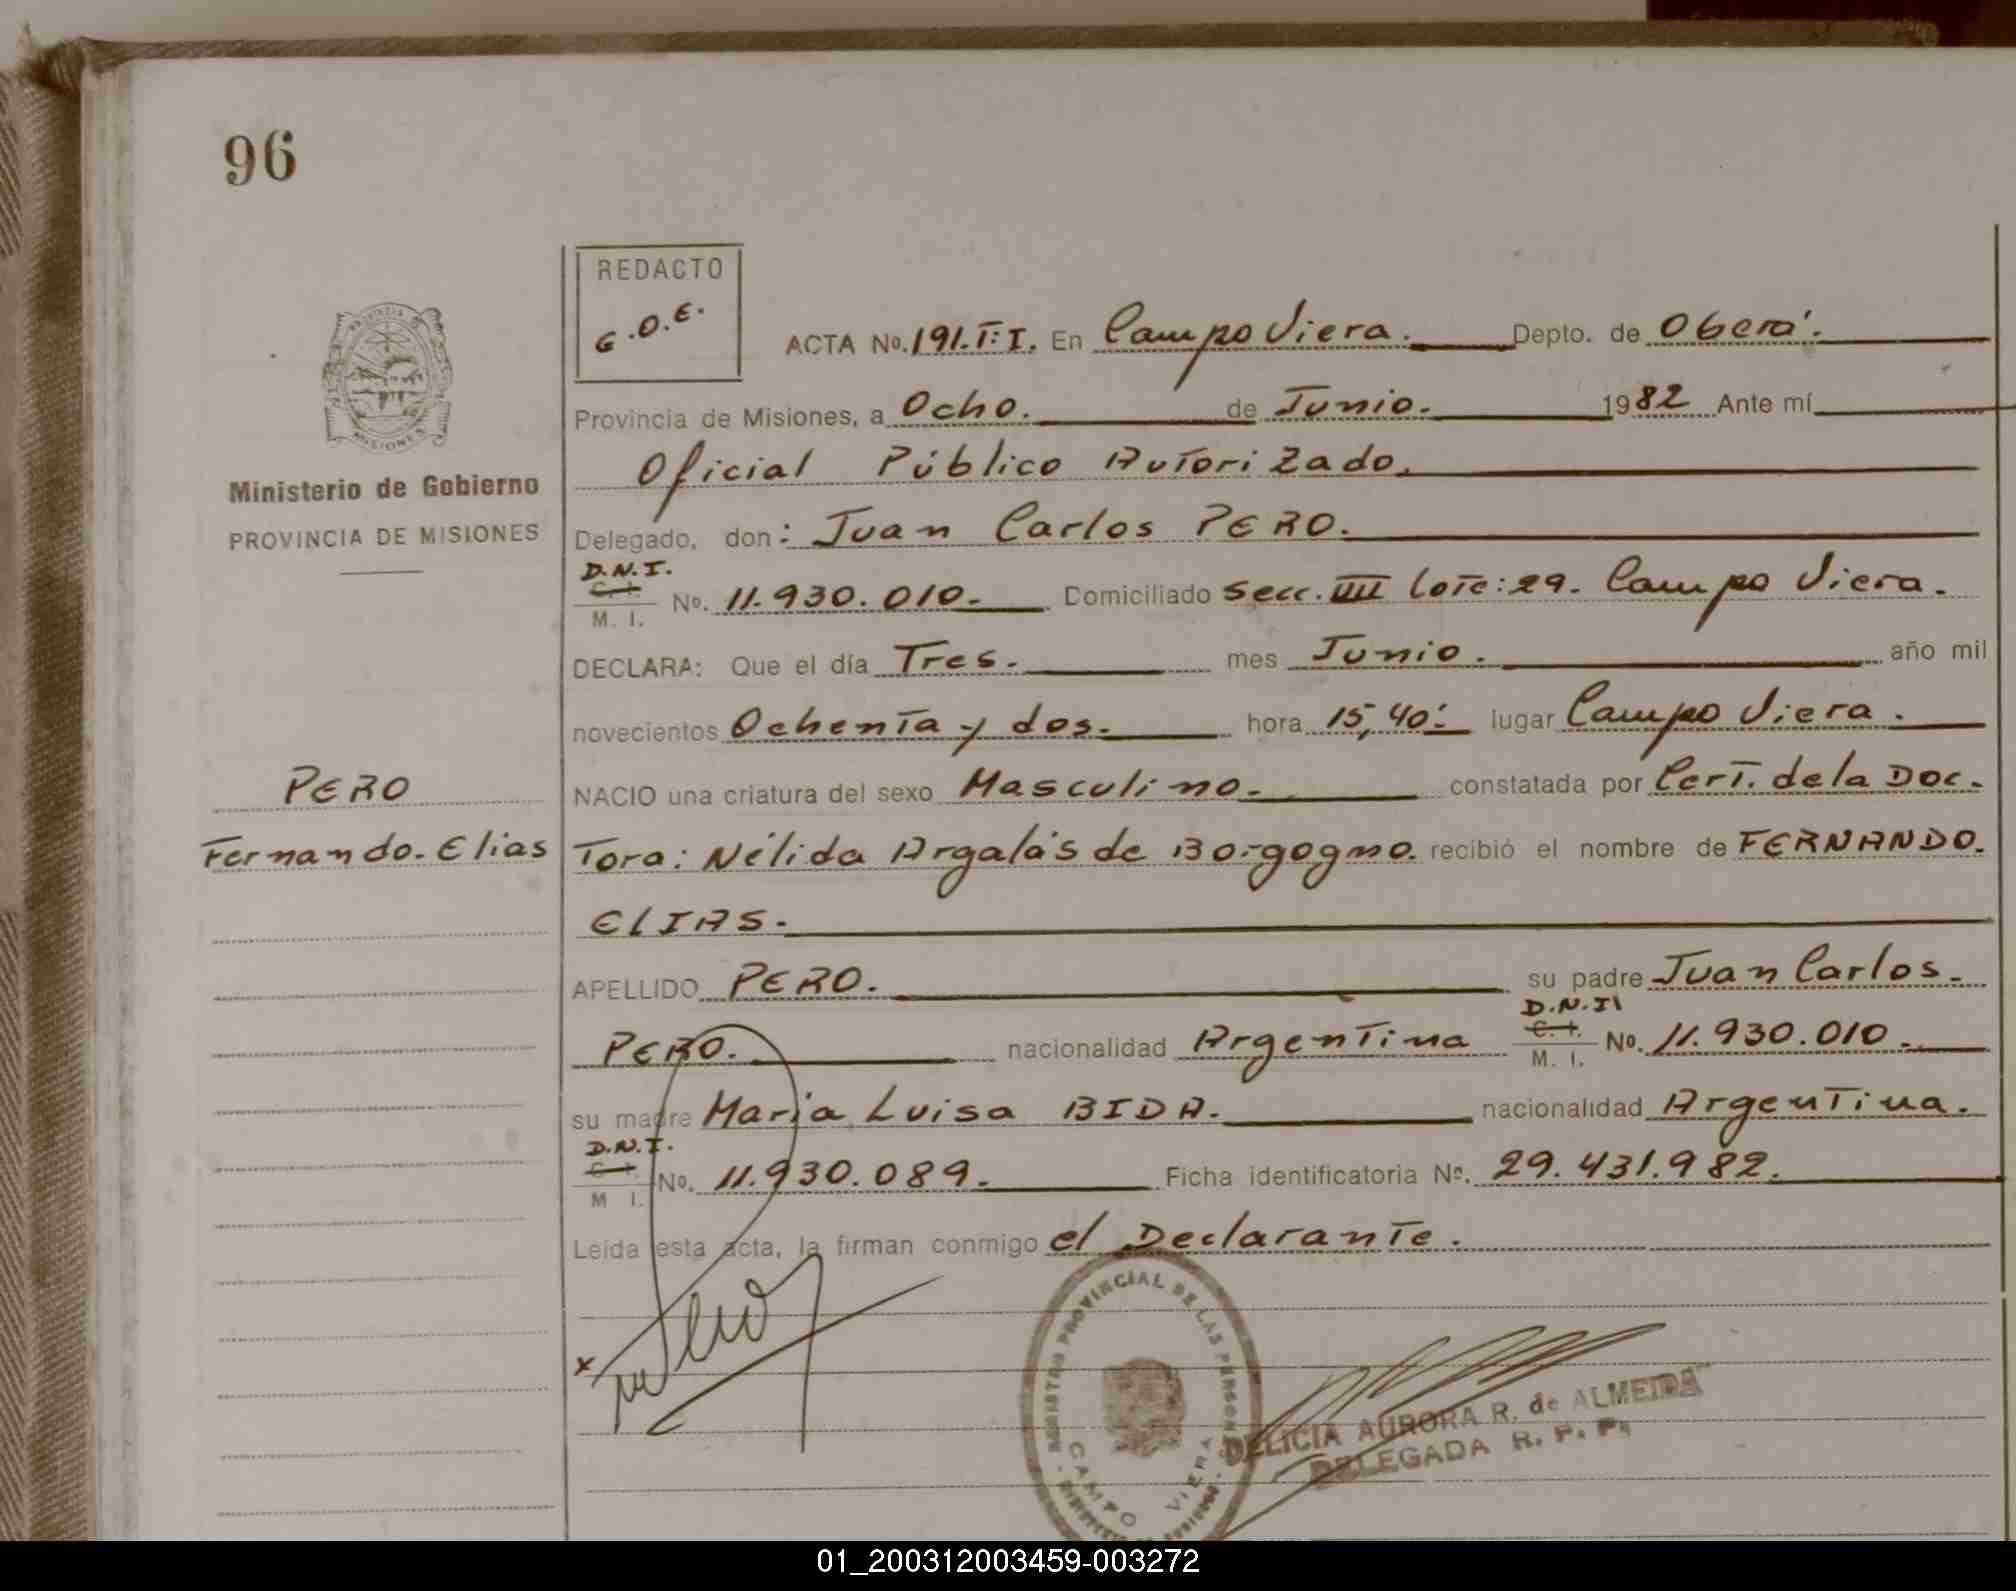 96
REDACTO
G.O.E.
ACTA No. 191.T:I. En Campo Viera. Depto. de Oberá.
Provincia de Misiones, a Ocho. de Junio. 1982 Ante mí
Oficial Público Autorizado.
Delegado, don: Juan Carlos PERO.
D.N.I.
C. I.
M. I. No. 11.930.010. Domiciliado Secc. IIII Lote: 29. Campo Viera.
DECLARA: Que el día Tres. mes Junio. año mil
novecientos Ochenta y dos. hora 15,40: lugar Campo Viera.
NACIO una criatura del sexo Masculino. constatada por Cert. de la Doc.
Tora: Nélida Argalás de Borgogno. recibió el nombre de FERNANDO.
ELIAS.
APELLIDO PERO. su padre Juan Carlos.
PERO. nacionalidad Argentina D.N.I C. I. M. I. No. 11.930.010.
su madre Maria Luisa BIDA. nacionalidad Argentina.
D.N.I.
C. I.
M I. No. 11.930.089. Ficha identificatoria Nº. 29.431.982.
Leída esta acta, la firman conmigo el Declarante.
x
REGISTRO PROVINCIAL DE LAS PERSONAS
CAMPO VIERA
DELICIA AURORA R. de ALMEIDA
DELEGADA R. P. P.
PROVINCIA DE
MISIONES
Ministerio de Gobierno
PROVINCIA DE MISIONES
PERO
Fernando. Elias
01_200312003459-003272